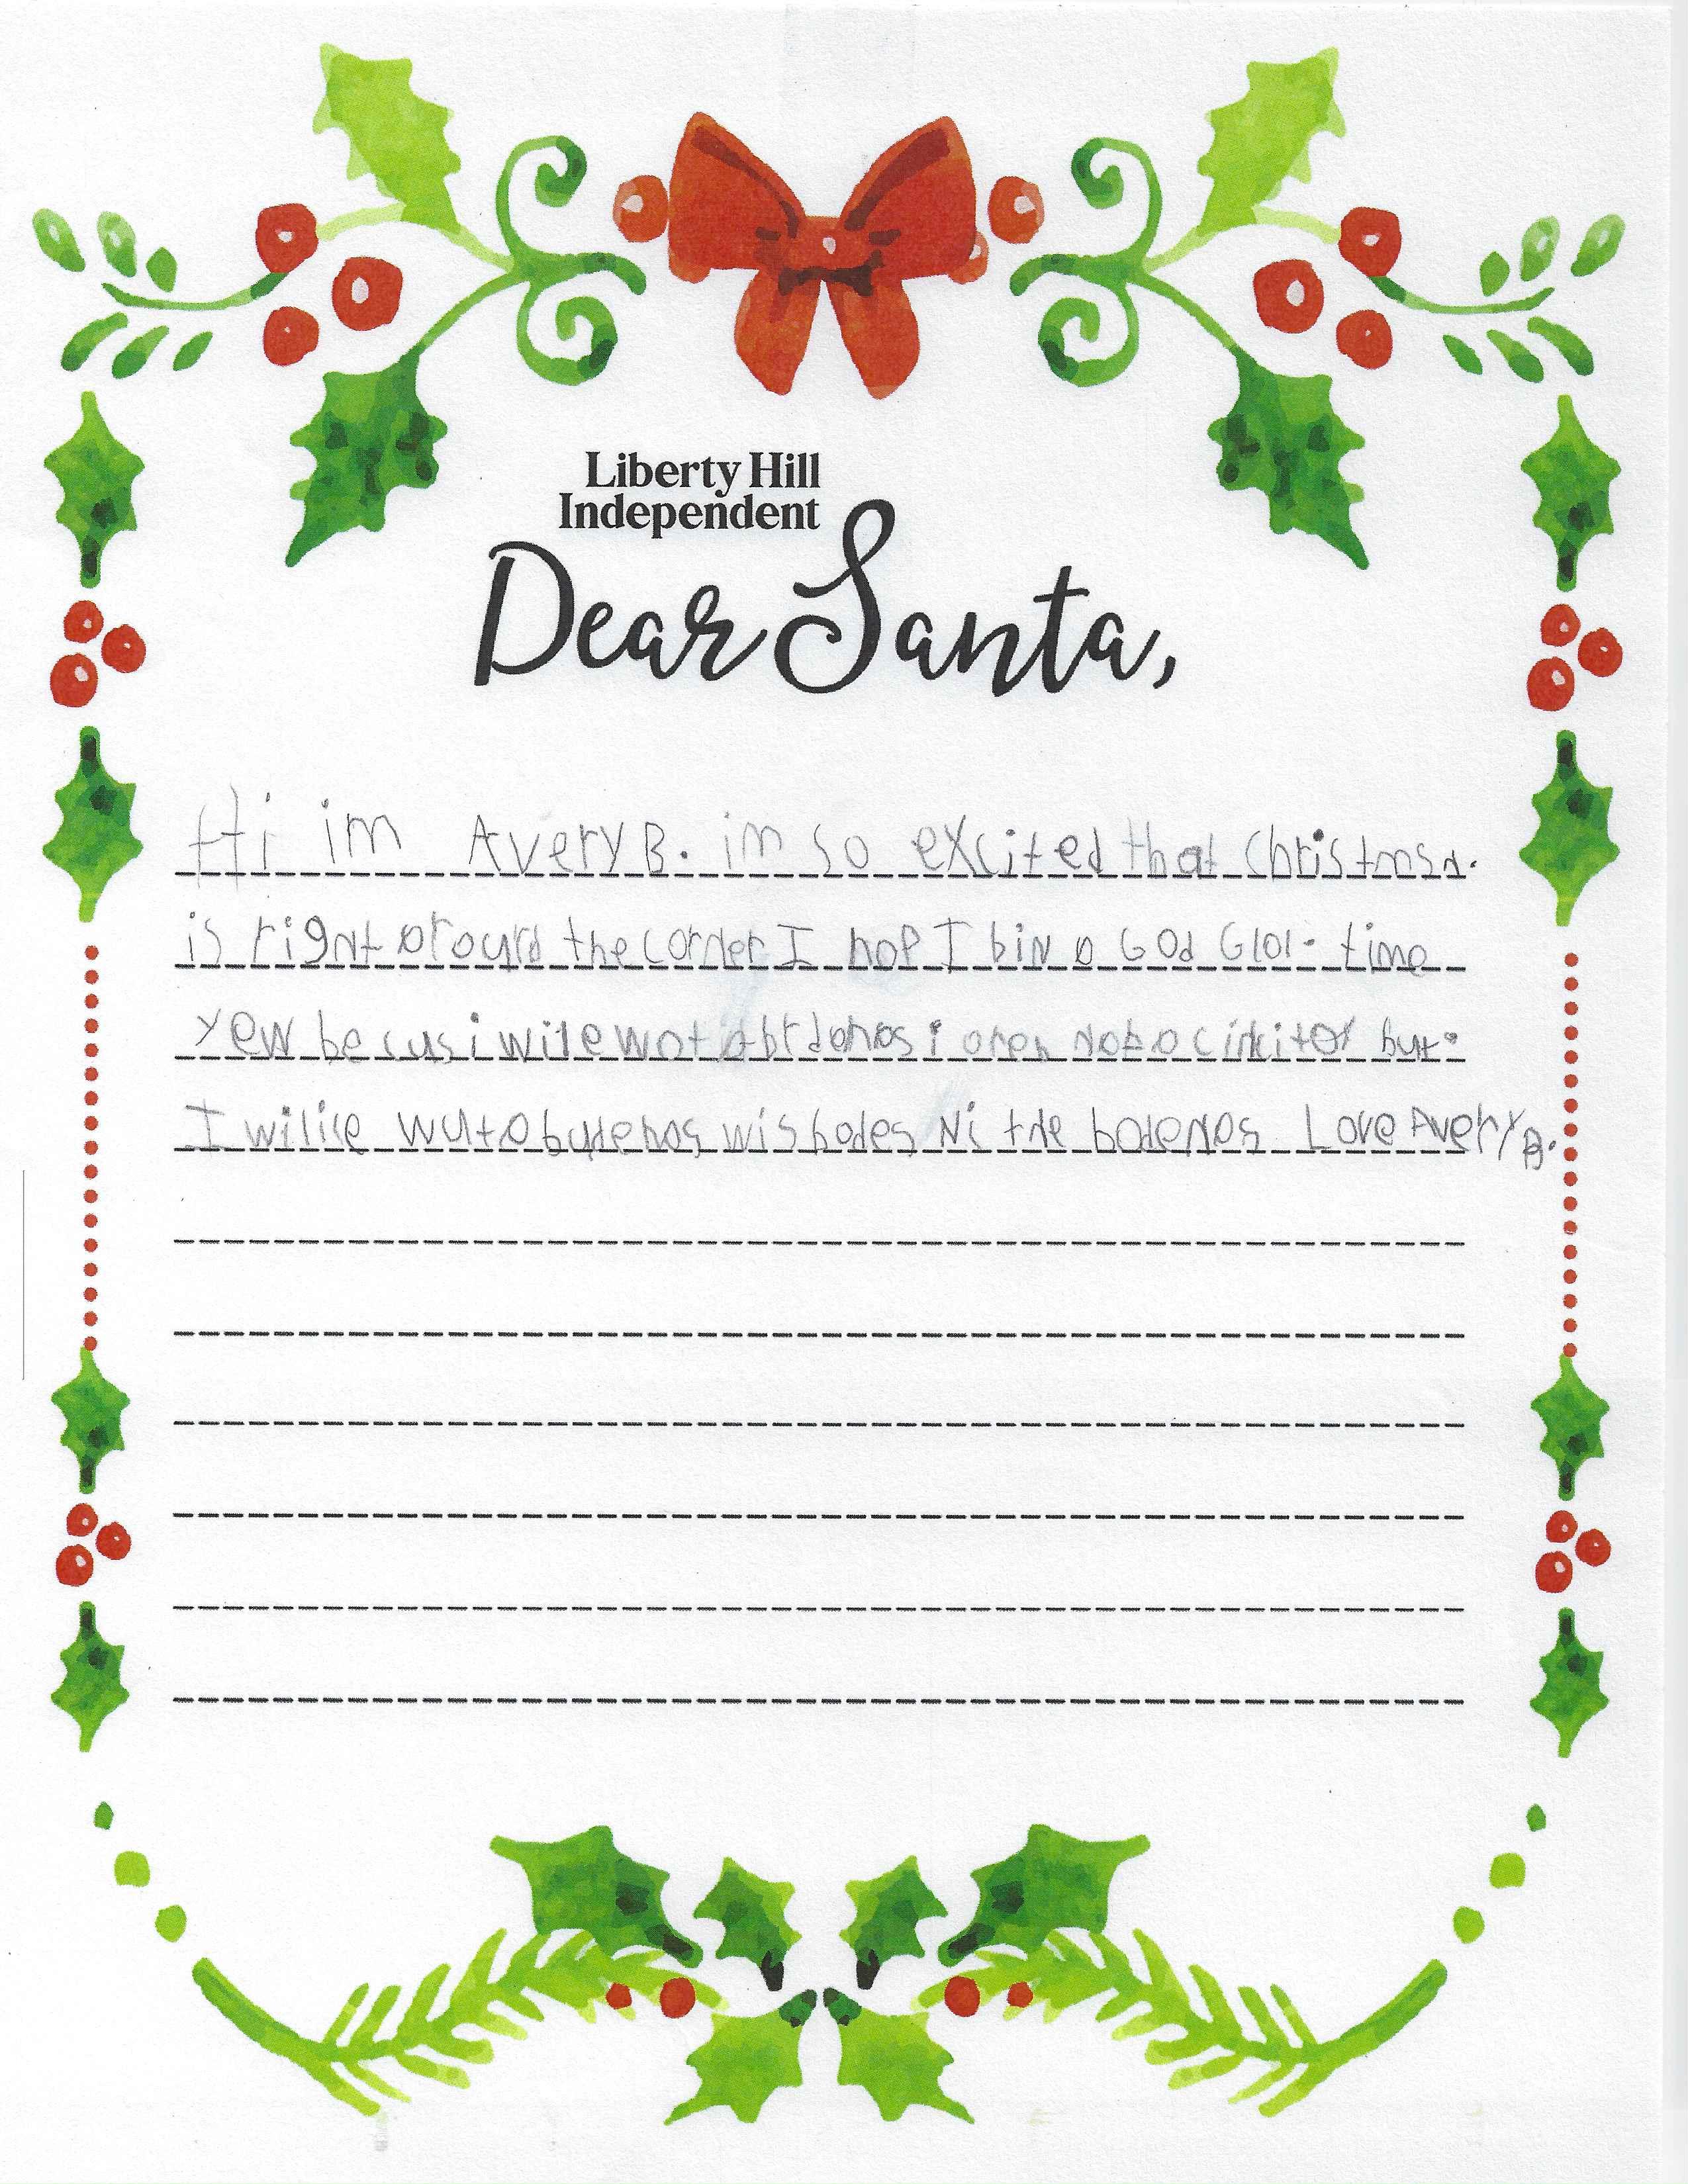 Liberty Hill
Independent
Dear Santa,
Hi im Avery B. im so excited that Christmsa.
is right around the corner I hop I bin a God Glol. time
yew be cus i wile wot a brdohos i open not a cinkitot but.
I wilice wut a butehos wis bodes Ni the botehos Love Avery B.